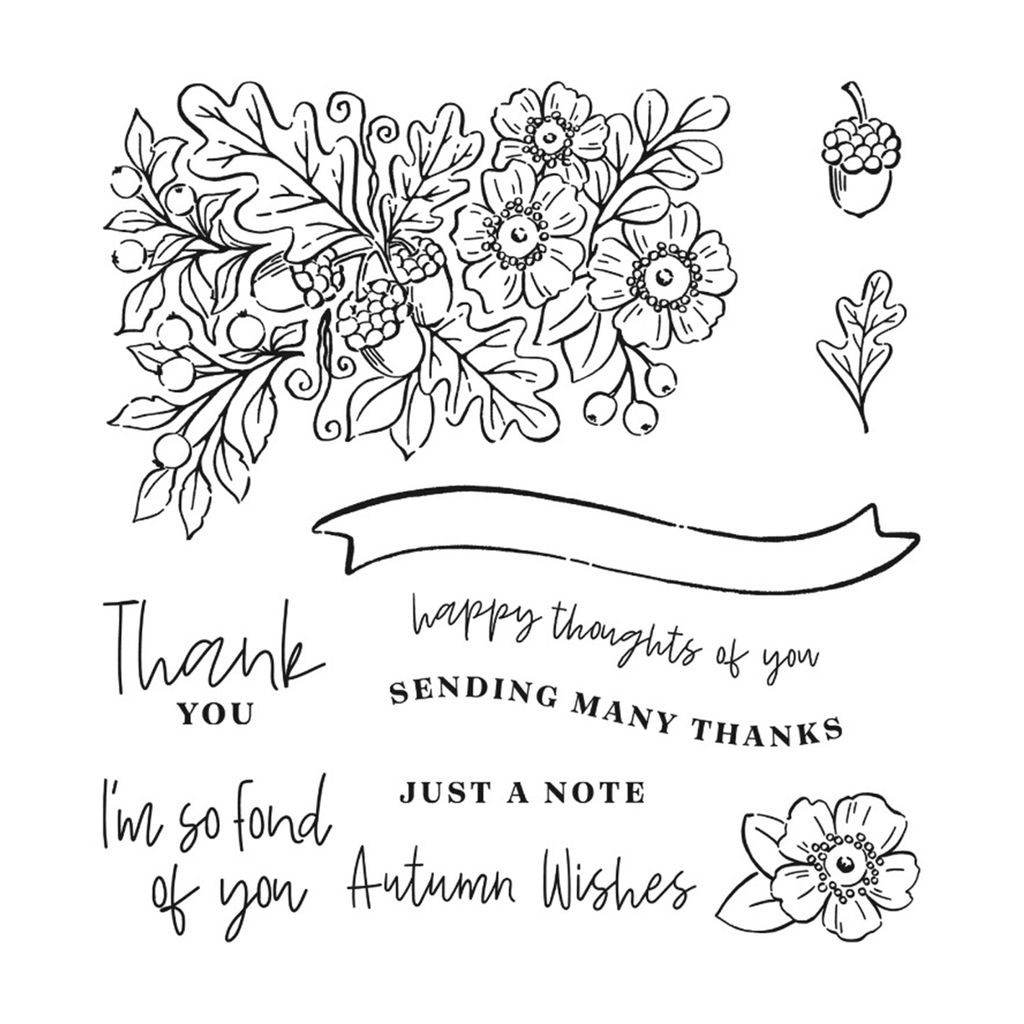 Thank
YOU
happy thoughts of you
SENDING MANY THANKS
JUST A NOTE
I'm so fond
of you
Autumn Wishes